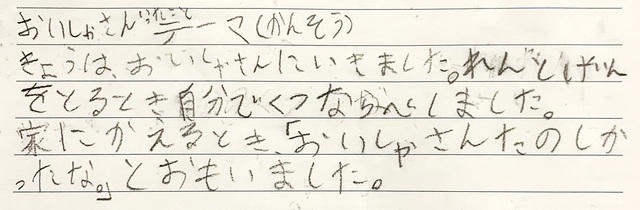 おいしゃさんいったこと テーマ(かんそう)
きょうは、おいしゃさんにいきました。れんとげん
をとるとき自分でくつなど しました。
家にかえるとき、「おいしゃさんたのしか
ったな。」とおもいました。